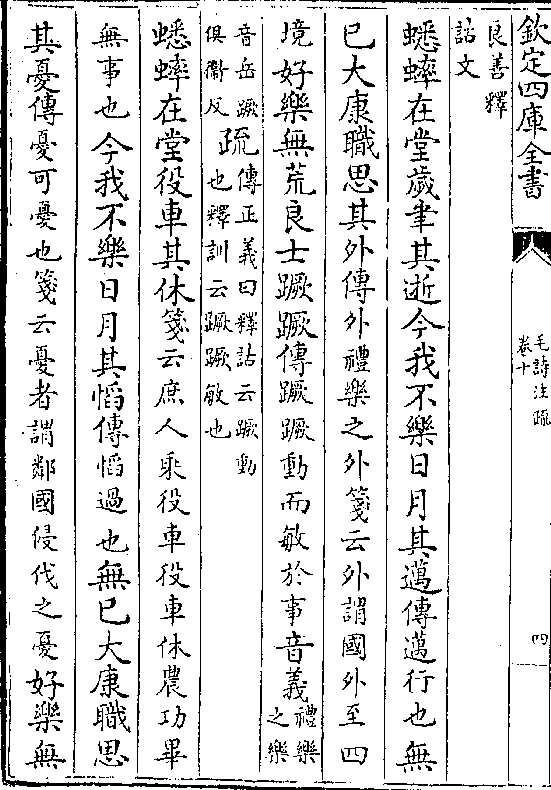 欽定四庫全書
毛詩注疏
卷十
四
良善釋
詁文
蟋蟀在堂歲聿其逝今我不樂日月其邁傳邁行也無
已大康職思其外傳外禮樂之外箋云外謂國外至四
境好樂無荒良士蹶蹶傳蹶蹶動而敏於事音義禮樂
之樂
音岳蹶
俱衛反
疏傳正義曰釋詁云蹶動
也釋訓云蹶蹶敏也
蟋蟀在堂役車其休箋云庶人乘役車役車休農功畢
無事也今我不樂日月其慆傳慆過也無已大康職思
其憂傳憂可憂也箋云憂者謂鄰國侵伐之憂好樂無